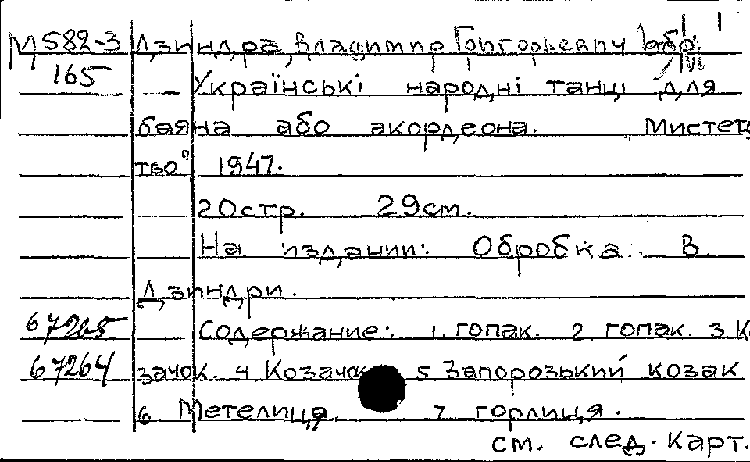 1
М 582-3 Дзиндра, Владимир Григорьевич
165 — Українські народні танці для
баяна або акордеона. Мистец
тво" 1947.
20стр. 29см.
На издании: Обробка В
Дзиндри.
67265 Содержание: 1. гопак. 2. гопак. 3 К
67264 зачок. 4 Козачок 5 Запорозький козак
6 Метелиця. 7 горлиця.
см. след. карт.